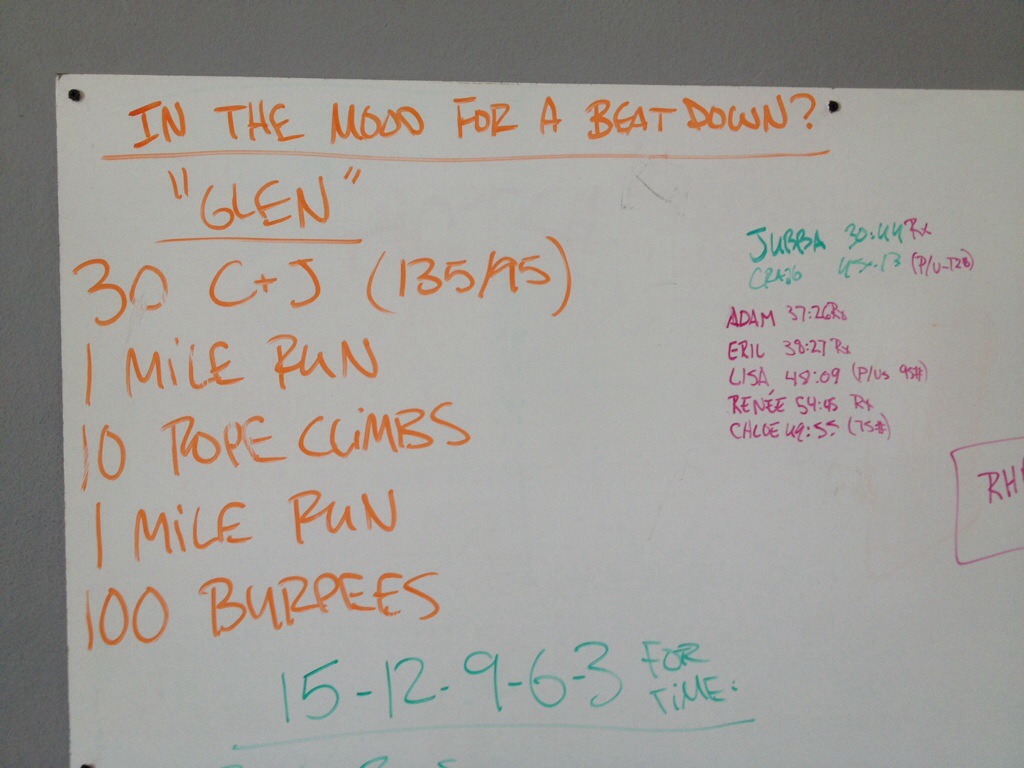 IN THE MOOD FOR A BEAT DOWN?
"GLEN"
30 C+J (135/95)
1 MILE RUN
10 ROPE CLIMBS
1 MILE RUN
100 BURPEES
15-12-9-6-3 FOR TIME:
JUBBA 30:44 Rx
CRAIG
ADAM 37:26 Rx
ERIC 38:27 Rx
LISA 48:09 (P/Us 95#)
RENÉE 54:45 Rx
CHLOE 49:55 (75#)